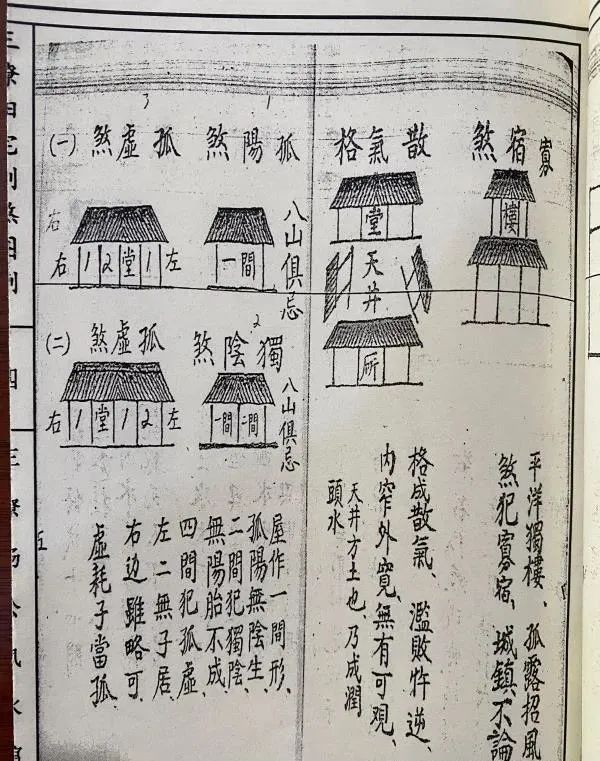 寡宿煞
樓
平洋獨樓、孤露招風
煞犯寡宿、城鎮不論
散氣格
堂
天井
所
格成散氣、濫敗忤逆、
內窄外寬、無有可观、
天井方土也、乃成潤
頭水
1
孤陽煞
八山俱忌
一間
3
孤虛煞
(一)
右
右 1 2 堂 1 左
2
獨陰煞
八山俱忌
一間 二間
孤虛煞
(二)
右 1 堂 1 2 左
屋作一間形、
孤陽無陰生、
二間犯獨陰、
無陽胎不成
四間犯孤虛、
左二無子居、
右边雖略可、
虛耗子當孤、
四
五